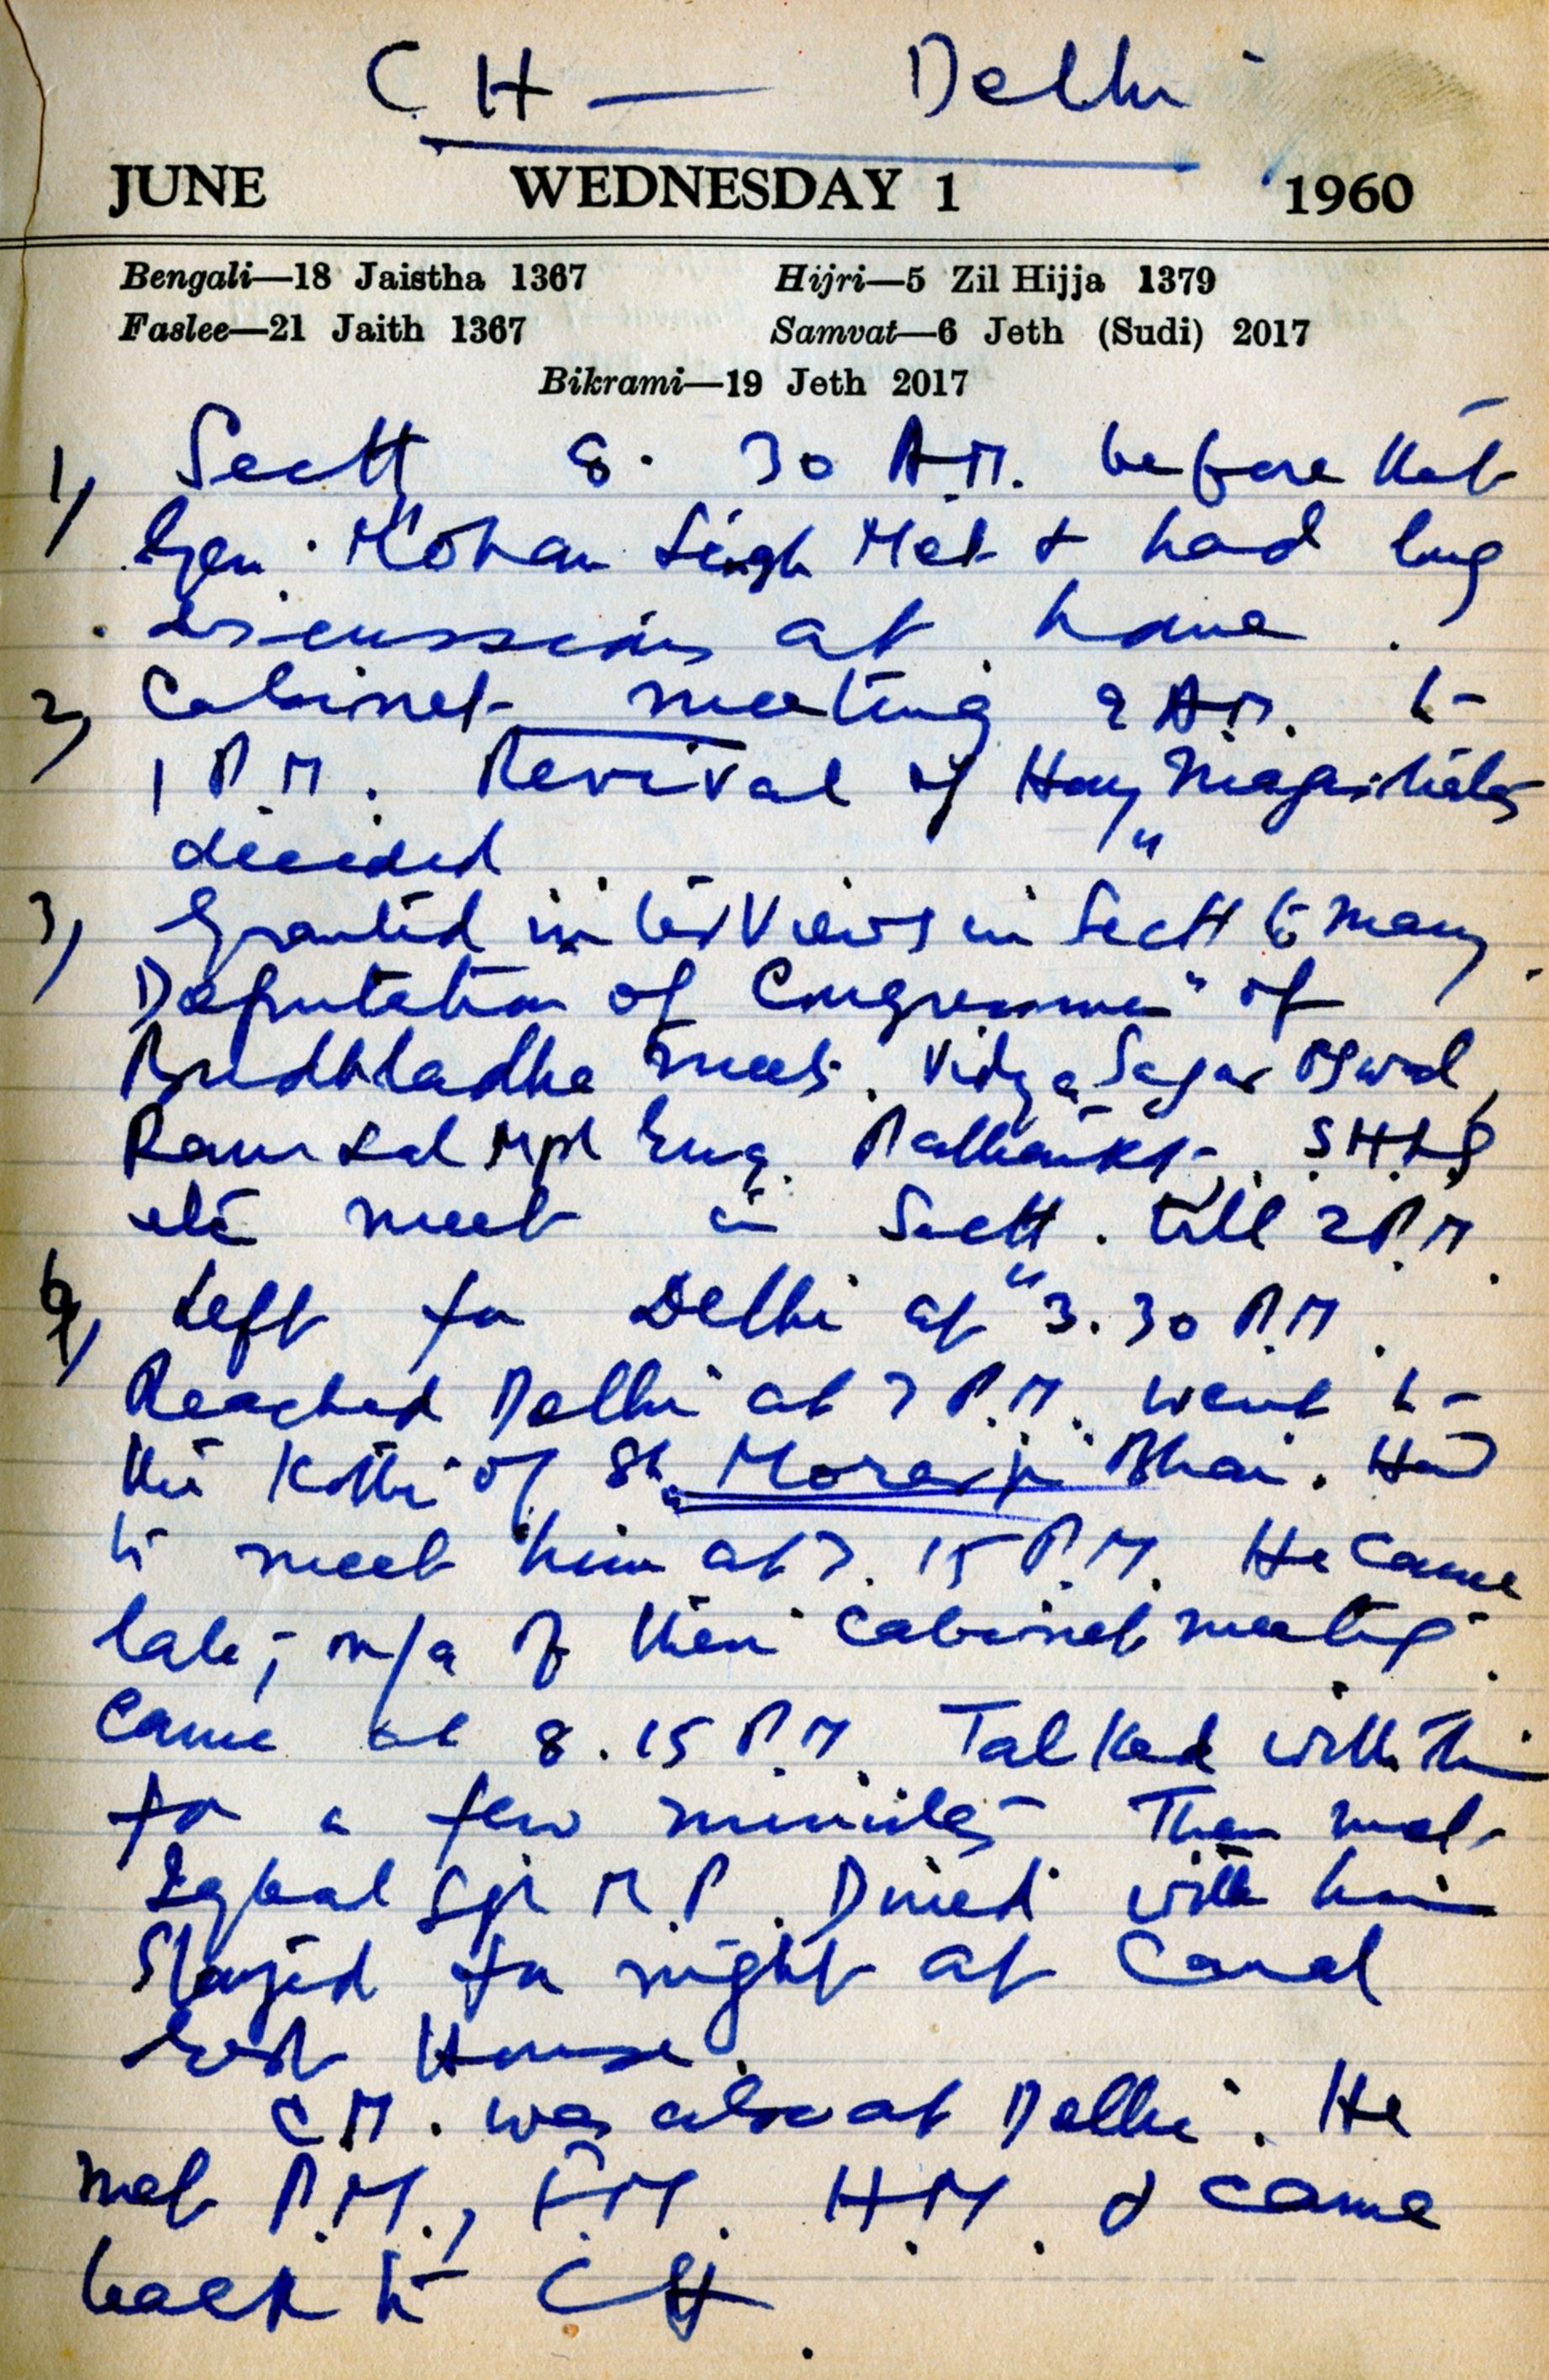 CH — Delhi
JUNE WEDNESDAY 1 1960
Bengali—18 Jaistha 1367 Hijri—5 Zil Hijja 1379
Faslee—21 Jaith 1367 Samvat—6 Jeth (Sudi) 2017
Bikrami—19 Jeth 2017
1) Sectt 8.30 A.M. before that
Gen. Mohan Singh Met & had long
discussions at home.
2) Cabinet meeting 9 A.M. to
1 P.M. Revival of Hony Magistrates
decided
3) Granted interviews in Sectt to many.
Deputation of Congressmen of
Budhladha meet. Vidya Sagar Oswal,
Ram Lal Mpl Eng. Pathankt. S.H.L.S
etc meet in Sectt. till 2 P.M.
4) Left for Delhi at 3.30 P.M.
Reached Delhi at 7 P.M. went to
the Kothi of Sh. Morarji Bhai. Had
to meet him at 7.15 P.M. He came
late, o/a of their cabinet meeting.
came at 8.15 P.M. Talked with
for a few minutes Then met
Iqbal Sgh M.P. Dined with him
Stayed for night at Canal
Rest House.
C.M. was also at Delhi. He
met P.M., F.M. H.M. & came
back to CH.